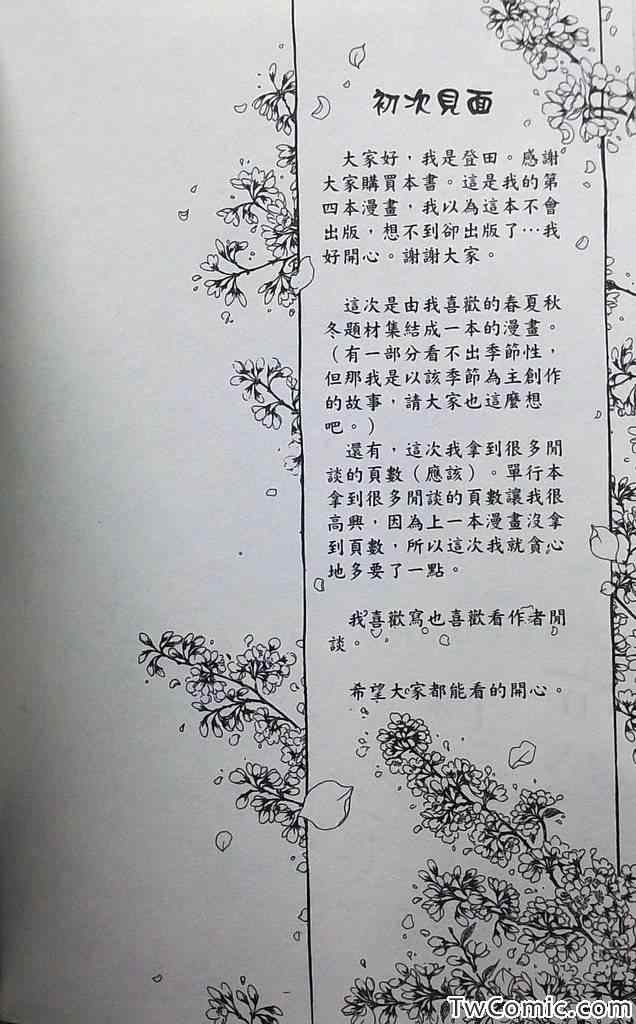 初次見面
大家好，我是登田。感謝
大家購買本書。這是我的第
四本漫畫，我以為這本不會
出版，想不到卻出版了…我
好開心。謝謝大家。
這次是由我喜歡的春夏秋
冬題材集結成一本的漫畫。
（有一部分看不出季節性，
但那我是以該季節為主創作
的故事，請大家也這麼想
吧。）
還有，這次我拿到很多閒
談的頁數（應該）。單行本
拿到很多閒談的頁數讓我很
高興，因為上一本漫畫沒拿
到頁數，所以這次我就貪心
地多要了一點。
我喜歡寫也喜歡看作者閒
談。
希望大家都能看的開心。
www.TwComic.com
TwComic.com